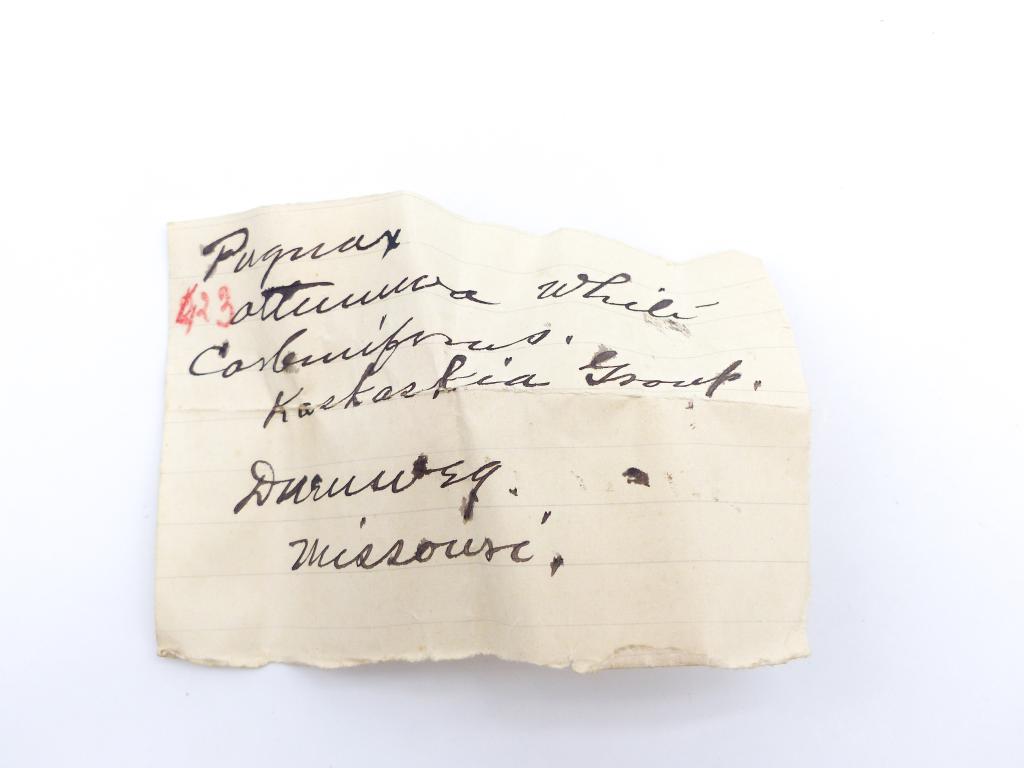 Pugnax
423 ottumwa White
Carboniferous.
Kaskaskia Group.
Duenweg.
Missouri.